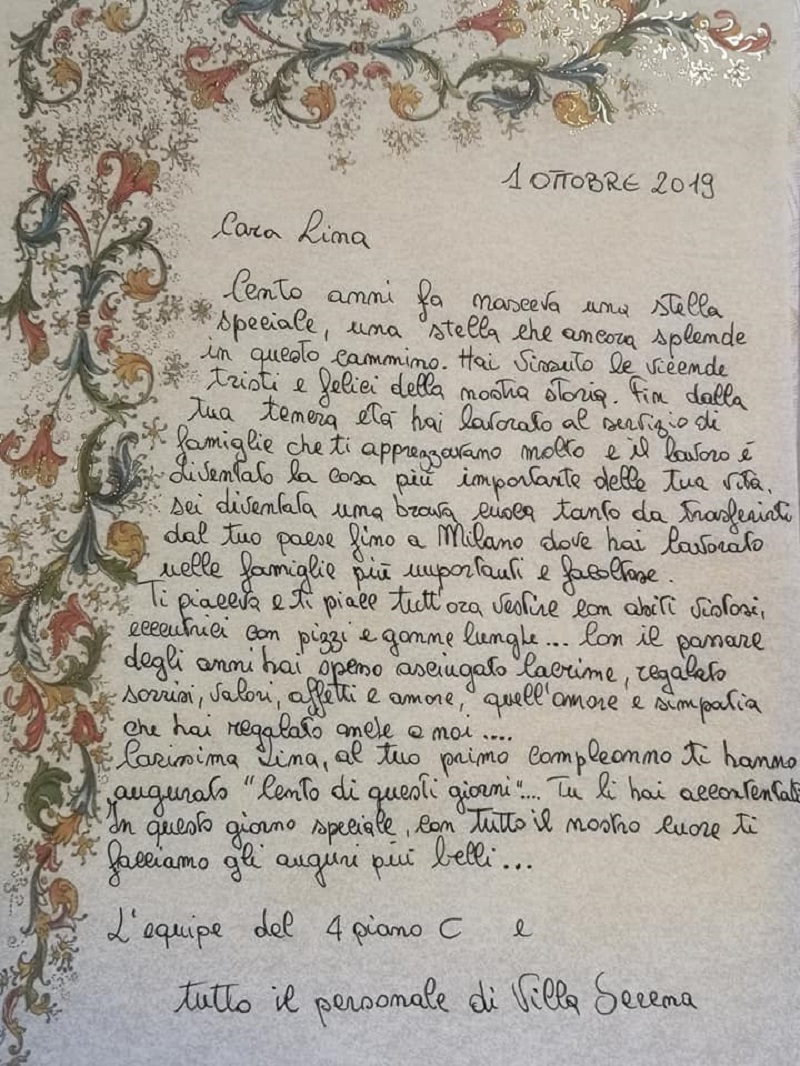 1 OTTOBRE 2019
Cara Lina
Cento anni fa nasceva una stella
speciale, una stella che ancora splende
in questo cammino. Hai vissuto le vicende
tristi e felici della nostra storia. Fin dalla
tua tenera età hai lavorato al servizio di
famiglie che ti apprezzavano molto e il lavoro è
diventato la cosa più importante della tua vita,
sei diventata una brava cuoca tanto da trasferirti
dal tuo paese fino a Milano dove hai lavorato
nelle famiglie più importanti e facoltose.
Ti piaceva e ti piace tutt'ora vestire con abiti vistosi,
eccentrici con pizzi e gonne lunghe... Con il passare
degli anni hai spesso asciugato lacrime, regalato
sorrisi, valori, affetti e amore, quell'amore e simpatia
che hai regalato anche a noi....
Carissima Lina, al tuo primo compleanno ti hanno
augurato "Cento di questi giorni".... Tu li hai accontentati
In questo giorno speciale, con tutto il nostro cuore ti
facciamo gli auguri più belli...
L'equipe del 4 piano C e
tutto il personale di Villa Serena